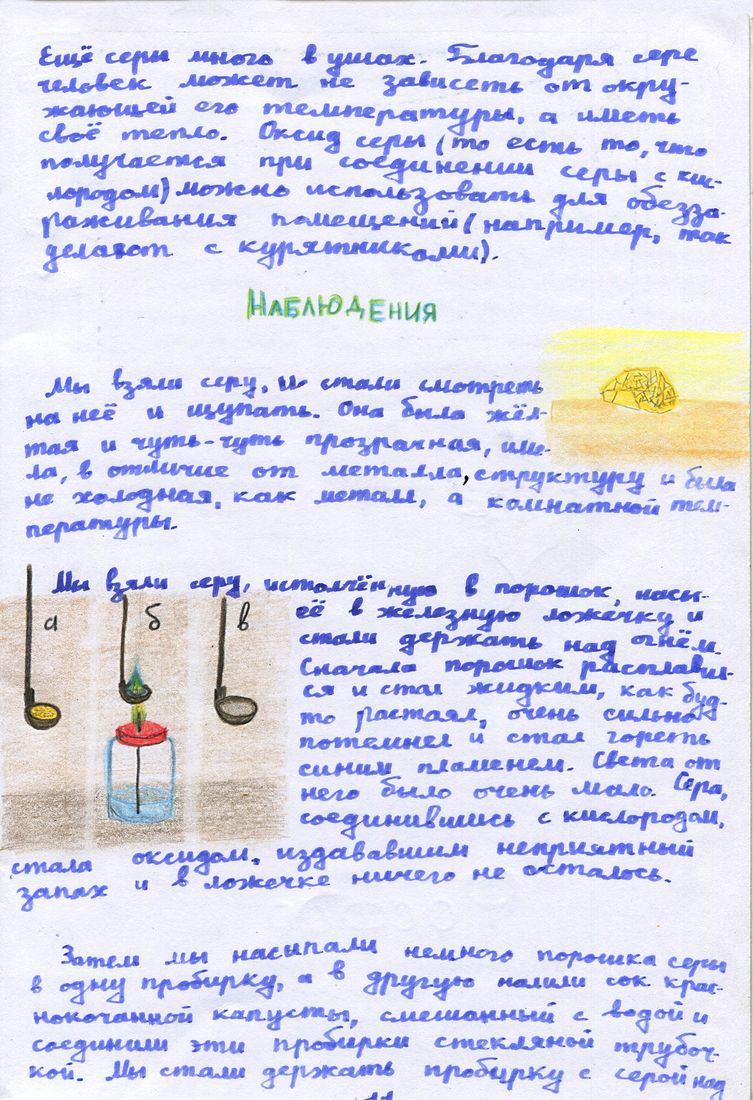 Ещё серы много в ушах. Благодаря сере
человек может не зависеть от окру-
жающей его температуры, а иметь
своё тепло. Оксид серы (то есть то, что
получается при соединении серы с кис-
лородом) можно использовать для обезза-
раживания помещений (например, так
делают с курятниками).
НАБЛЮДЕНИЯ
Мы взяли серу, и стали смотреть
на неё и щупать. Она была жёл-
тая и чуть-чуть прозрачная, име-
ла, в отличие от металла, структуру и была
не холодная, как металл, а комнатной тем-
пературы.
Мы взяли серу, истолчённую в порошок, насы-
её в железную ложечку и
стали держать над огнём.
Сначала порошок расплавил-
ся и стал жидким, как буд-
то растаял, очень сильно
потемнел и стал гореть
синим пламенем. Света от
него было очень мало. Сера,
соединившись с кислородом,
стала оксидом, издававшим неприятный
запах и в ложечке ничего не осталось.
а б в
Затем мы насыпали немного порошка серы
в одну пробирку, а в другую налили сок крас-
нокочанной капусты, смешанный с водой и
соединили эти пробирки стекляной трубоч-
кой. Мы стали держать пробирку с серой над
11